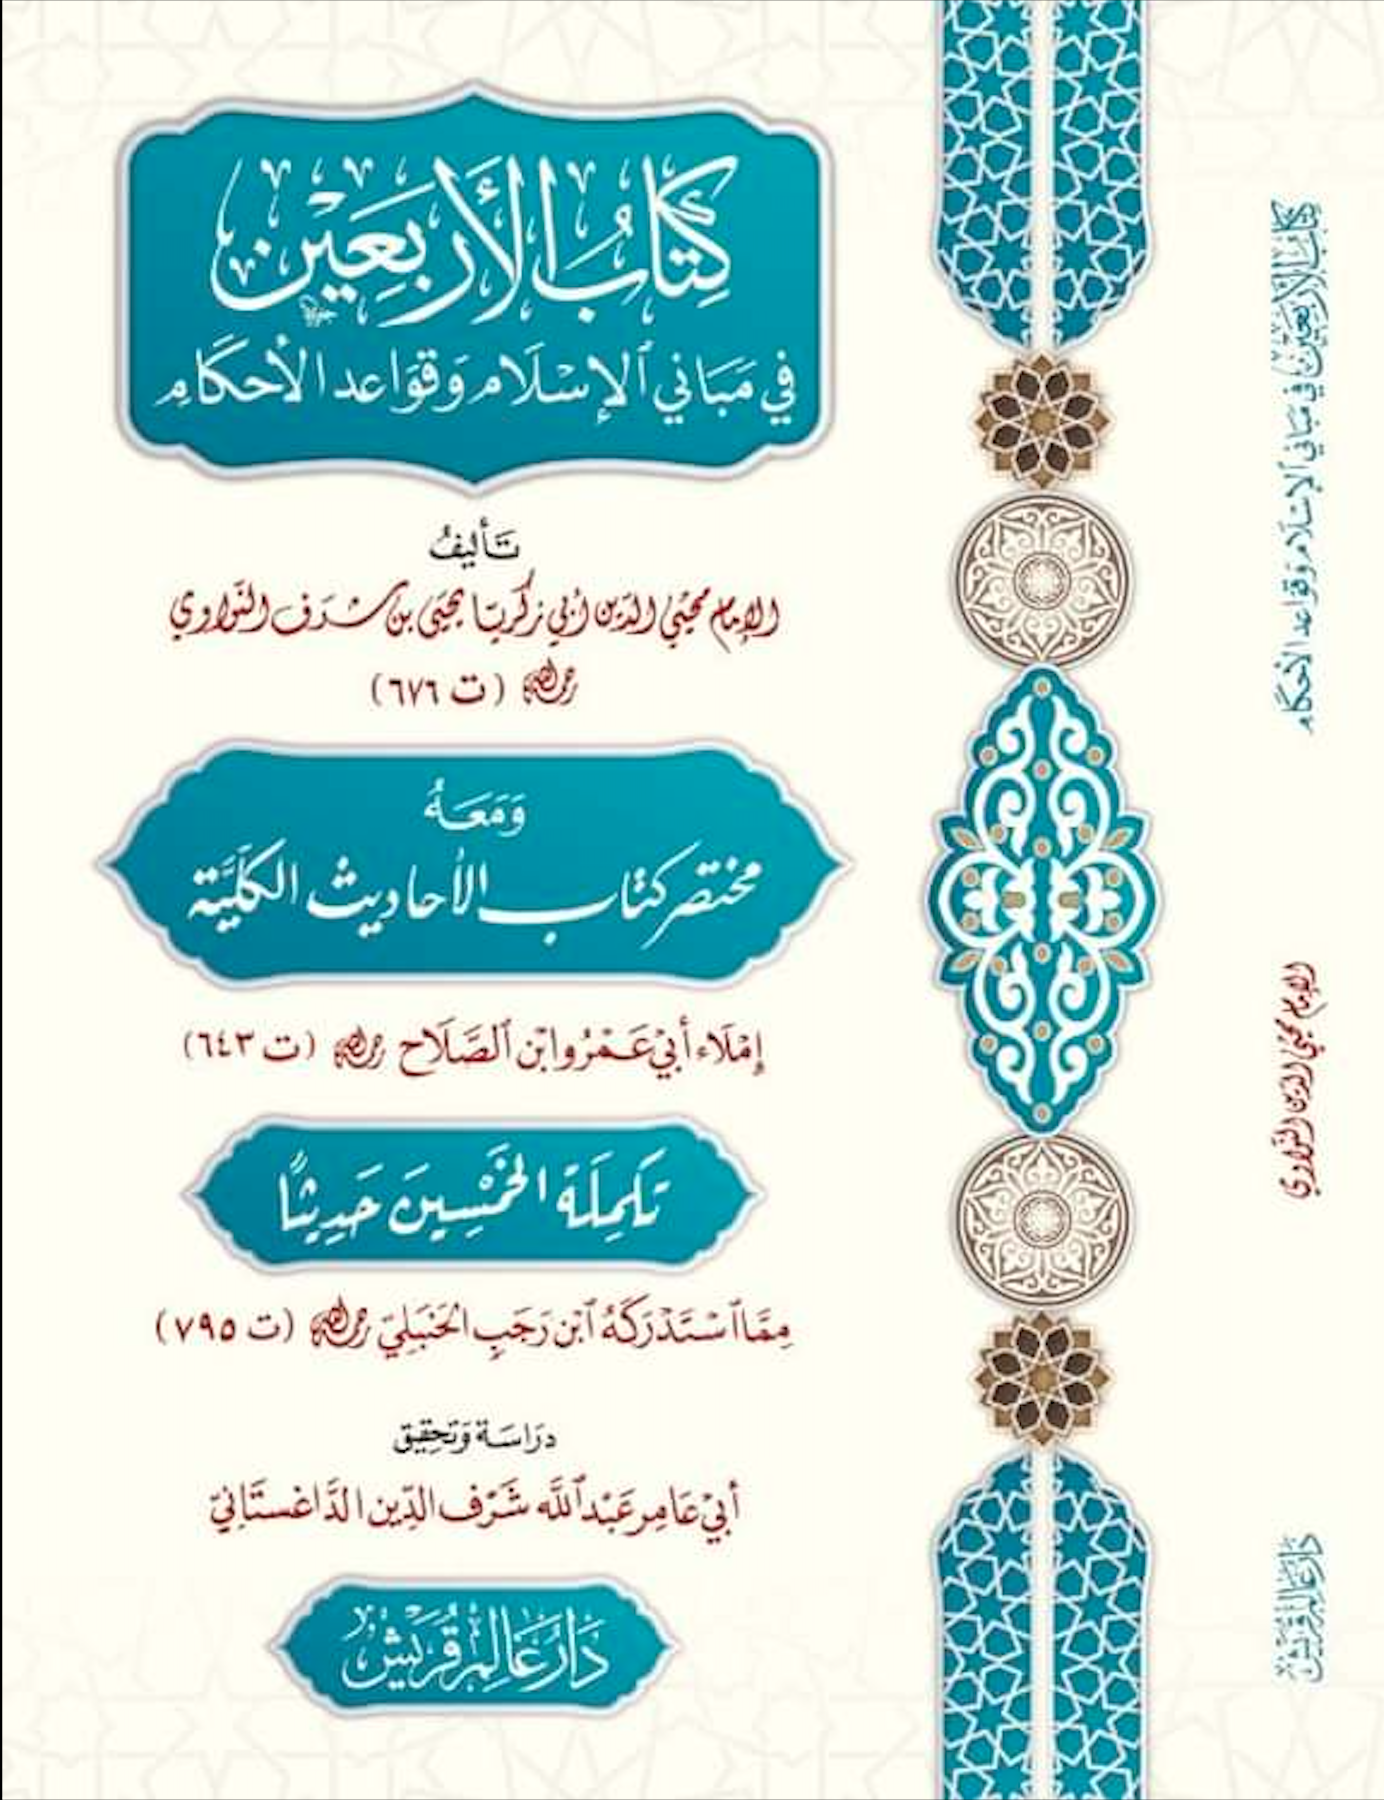 كِتَابُ الأَرْبَعِيْنَ
فِي مَبَانِي ٱلْإِسْلَام وَقَوَاعد الأَحكَامِ
تَأليفُ
الإمام محيي الدّين أبي زكريّا يحيَى بن شرَف النّوَاوي
رحمه الله (ت ٦٧٦)
وَمَعَهُ
مختصر كتاب الأحاديث الكلّيَّة
إِمْلَاء أَبِيْ عَمْرُو ابْن ٱلصَّلَاح رحمه الله (ت ٦٤٣)
تَكمِلَة الخَمْسِينَ حَدِيثًا
مِمَّا ٱسْتَدْرَكَهُ ٱبْن رَجَبٍ الحَنبَليّ رحمه الله (ت ٧٩٥)
درَاسَة وَتَحقِيق
أَبِيْ عَامِر عَبْد ٱللَّه شَرَف الدِّين الدَّاغستَانِيّ
دَارُ عَالِم قُرَيْش
كِتَابُ الأَرْبَعِيْنَ فِي مَبَانِي ٱلْإِسْلَام وَقَوَاعد الأَحكَامِ
الإمام محيي الدّين النّوَاوي
دَارُ عَالِم قُرَيْش